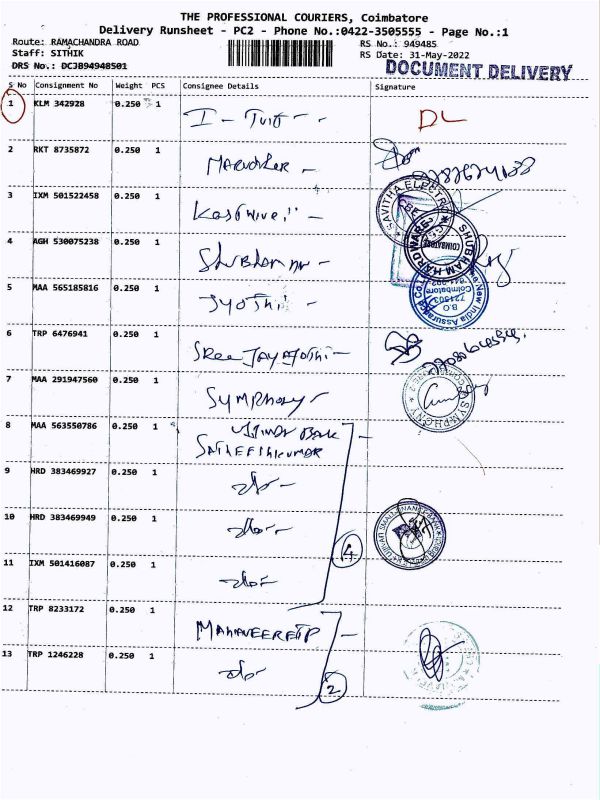 THE PROFESSIONAL COURIERS, Coimbatore
Delivery Runsheet - PC2 - Phone No.:0422-3505555 - Page No.:1
Route: RAMACHANDRA ROAD
RS No.: 949485
Staff: SITHIK
RS Date: 31-May-2022
DRS No.: DCJB94948501
DOCUMENT DELIVERY
S No Consignment No Weight PCS Consignee Details Signature
1 KLM 342928 0.250 1 DL
2 RKT 8735872 0.250 1
3 IXM 501522458 0.250 1
4 AGH 530075238 0.250 1 Shubham
5 MAA 565185816 0.250 1 Jyothi
6 TRP 6476941 0.250 1 Sree Jayajothi
7 MAA 291947560 0.250 1 Symphony
8 MAA 563550786 0.250 1 Bank
Satheeshkumar
9 HRD 383469927 0.250 1 do
10 HRD 383469949 0.250 1 do
11 IXM 501416087 0.250 1 do
4
12 TRP 8233172 0.250 1
13 TRP 1246228 0.250 1 do
2
SAVITHA ELECTRO
SHUBHAM HARDWARE
COIMBATORE
New India Assurance Co.
B.O
721503
Coimbatore
SYMPHONY